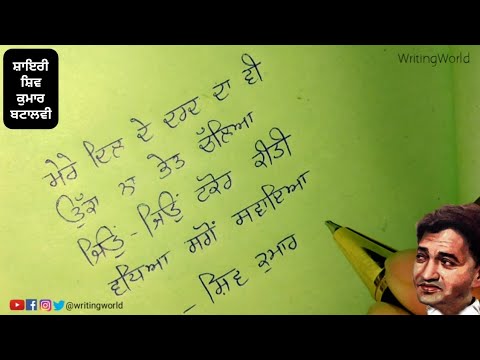 ਸ਼ਾਇਰੀ
ਸ਼ਿਵ
ਕੁਮਾਰ
ਬਟਾਲਵੀ
WritingWorld
ਮੇਰੇ ਦਿਲ ਦੇ ਦਰਦ ਦਾ ਵੀ
ਉੱਕਾ ਨਾ ਭੇਤ ਚੱਲਿਆ
ਜਿਉਂ-ਜਿਉਂ ਟਕੋਰ ਕੀਤੀ
ਵਧਿਆ ਸਗੋਂ ਸਵਾਇਆ
- ਸ਼ਿਵ ਕੁਮਾਰ
@writingworld